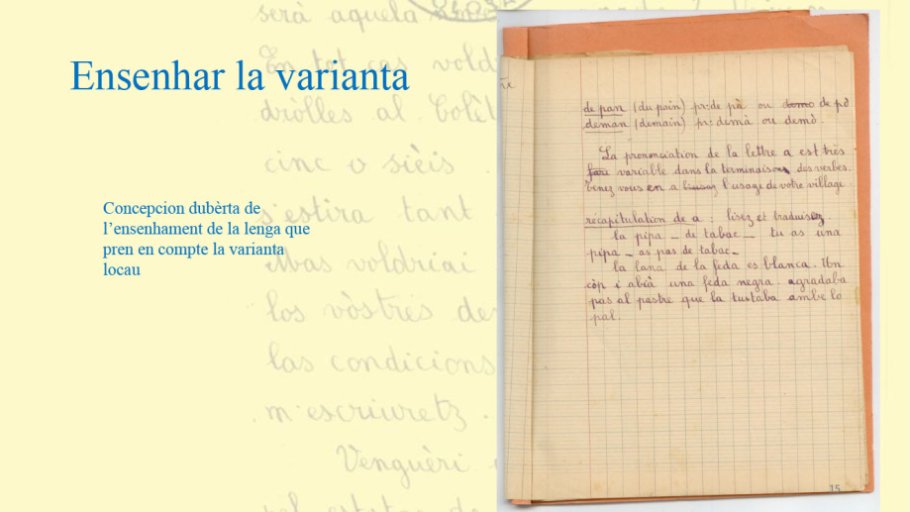 serà aquela
En tot cas vold
dròlles al Colè
cinc o sièis
s'estira tant
Mas voldriai
los vòstres de
las condicions
m'escriuretz.
Venguèri
Ensenhar la varianta
Concepcion dubèrta de
l'ensenhament de la lenga que
pren en compte la varianta
locau
de pan (du pain) pr: de pà ou domo de pò
deman (demain) pr: demà ou demò.
La prononciation de la lettre a est très
variable dans la terminaison des verbes.
Tenez vous en a l'usage de votre village
récapitulation de a : lisez et traduisez.
la pipa _ de tabac _ tu as una
pipa _ as pas de tabac _
la lana de la feda es blanca. Un
còp i abià una feda negra. agradaba
pas al pastre que la tustaba ambe lo
pal.
15